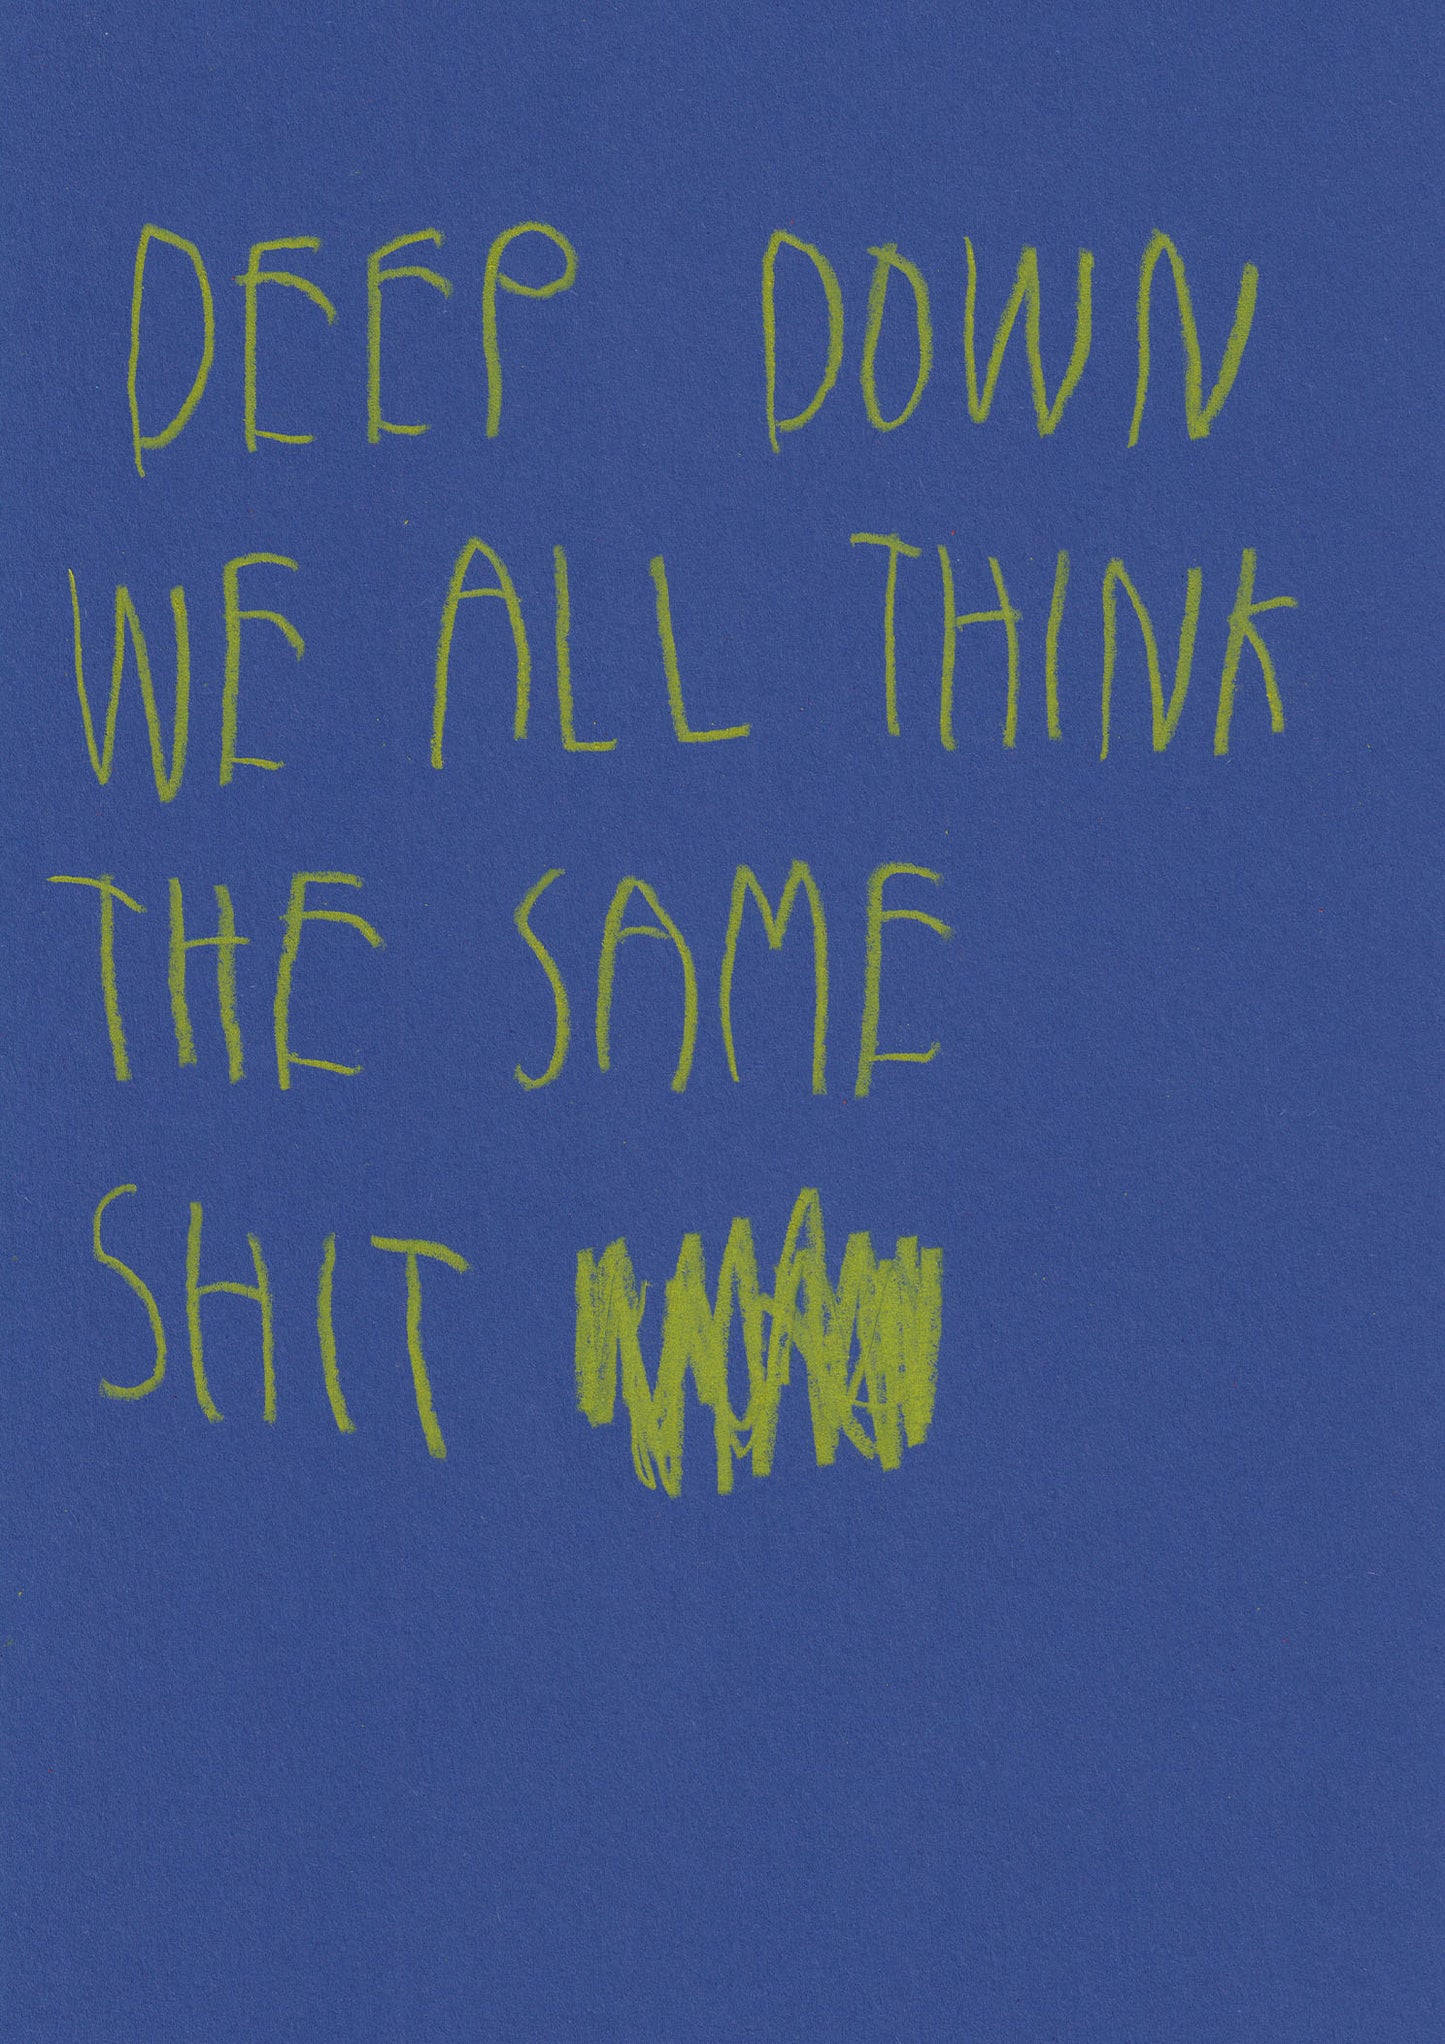 DEEP DOWN
WE ALL THINK
THE SAME
SHIT